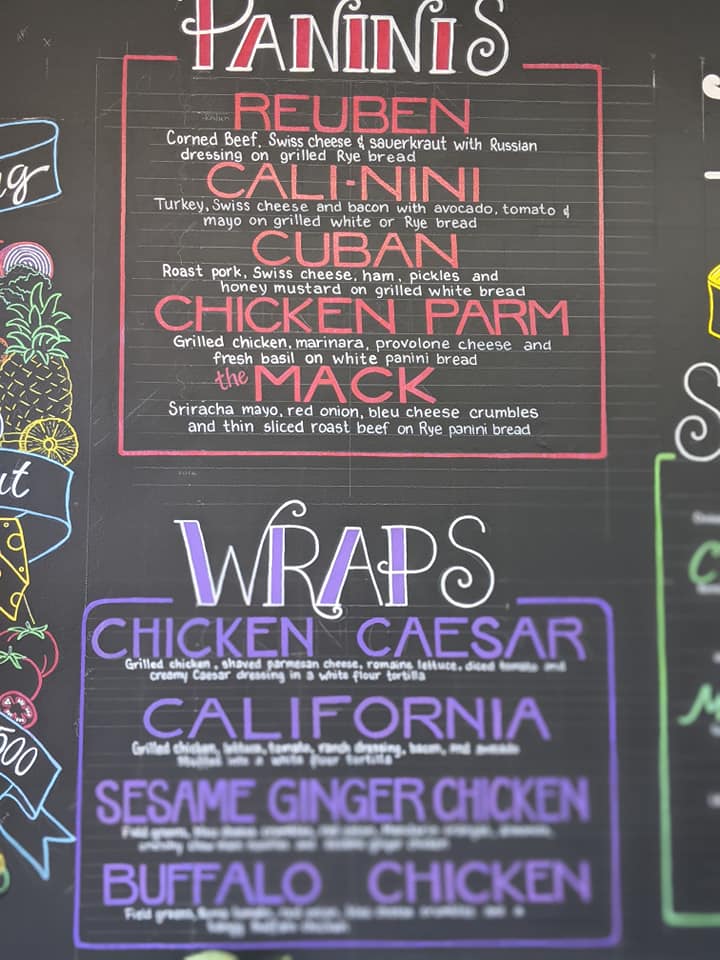 PANINIS
REUBEN
Corned Beef, Swiss cheese & sauerkraut with Russian
dressing on grilled Rye bread
CALI-NINI
Turkey, Swiss cheese and bacon with avocado, tomato &
mayo on grilled white or Rye bread
CUBAN
Roast pork, Swiss cheese, ham, pickles and
honey mustard on grilled white bread
CHICKEN PARM
Grilled chicken, marinara, provolone cheese and
fresh basil on white panini bread
the MACK
Sriracha mayo, red onion, bleu cheese crumbles
and thin sliced roast beef on Rye panini bread
WRAPS
CHICKEN CAESAR
Grilled chicken, shaved parmesan cheese, romaine lettuce, diced tomato and
creamy Caesar dressing in a white flour tortilla
CALIFORNIA
Grilled chicken, lettuce, tomato, ranch dressing, bacon, and avocado
white flour tortilla
SESAME GINGER CHICKEN
Field greens,
BUFFALO CHICKEN
Field greens,
500